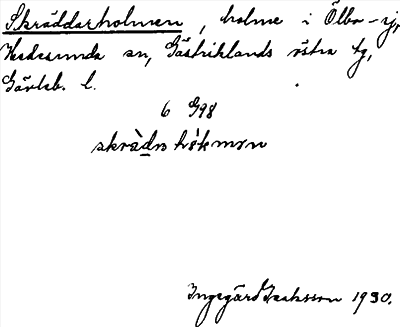 Skräddarholmen, holme i Ölbo-sjö,
Hedesunda sn, Gästriklands östra tg,
Gävleb. l.
6 G98
skrädn hòkmɒn
Ingegärd Isaksson 1930.